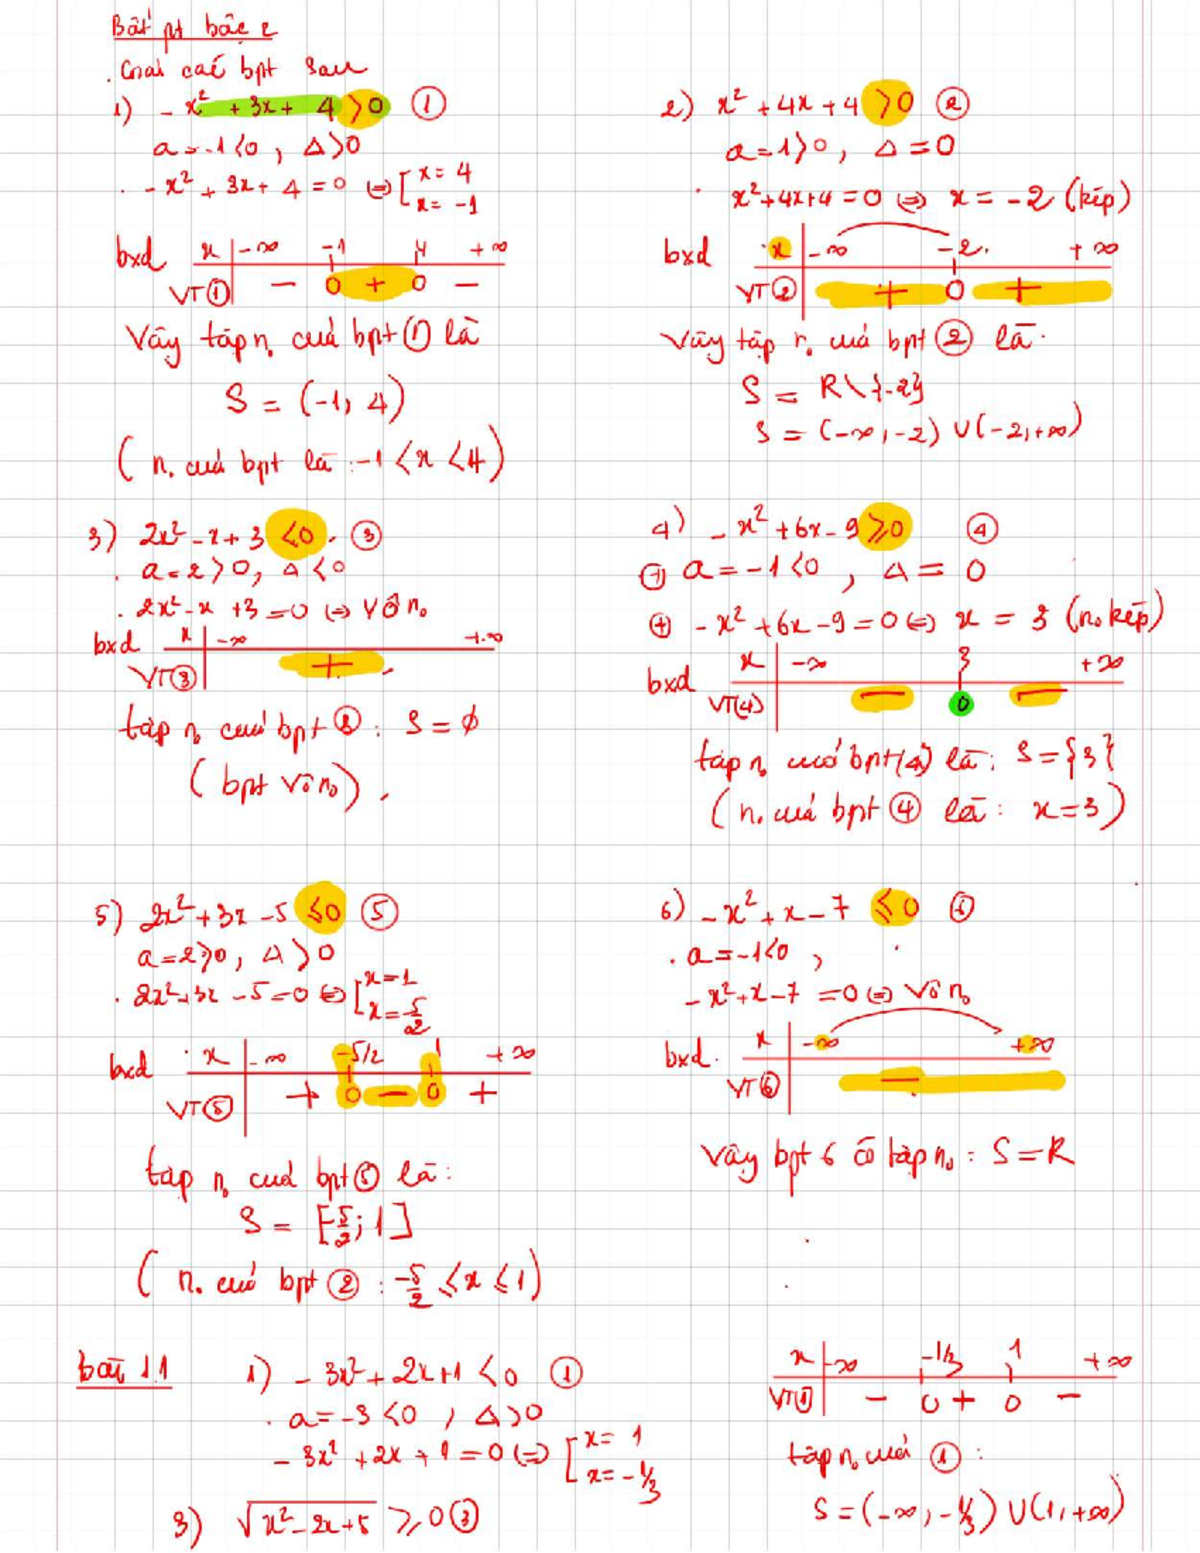 Bất pt bậc 2
. Giải các bpt sau
1) - x² + 3x + 4 > 0 ①
a = -1 < 0 , Δ > 0
. - x² + 3x + 4 = 0 ⇔ [ x = 4
x = -1
bxd x | -∞ -1 4 +∞
VT① | - 0 + 0 -
Vậy tập n₀ của bpt ① là
S = (-1, 4)
( n₀ của bpt là : -1 < x < 4 )
2) x² + 4x + 4 > 0 ②
a = 1 > 0 , Δ = 0
. x² + 4x + 4 = 0 ⇔ x = -2 (kép)
bxd x | -∞ -2 +∞
VT② | + 0 +
Vậy tập n₀ của bpt ② là
S = R \ {-2}
S = (-∞, -2) ∪ (-2, +∞)
3) 2x² - x + 3 < 0 . ③
. a = 2 > 0 , Δ < 0
. 2x² - x + 3 = 0 ⇔ Vô n₀
bxd x | -∞ +∞
VT③ | +
tập n₀ của bpt ③ : S = ∅
( bpt Vô n₀ ) .
4) - x² + 6x - 9 ≥ 0 ④
⊕ a = -1 < 0 , Δ = 0
⊕ - x² + 6x - 9 = 0 ⇔ x = 3 (n₀ kép)
bxd x | -∞ 3 +∞
VT(4) | - 0 -
tập n₀ của bpt (4) là : S = {3}
( n₀ của bpt ④ là : x = 3 )
5) 2x² + 3x - 5 ≤ 0 ⑤
a = 2 > 0 , Δ > 0
. 2x² + 3x - 5 = 0 ⇔ [ x = 1
x = -5/2
bxd x | -∞ -5/2 1 +∞
VT⑤ | + 0 - 0 +
tập n₀ của bpt ⑤ là :
S = [-5/2 ; 1]
( n₀ của bpt ② : -5/2 ≤ x ≤ 1 )
6) - x² + x - 7 ≤ 0 ⑥
. a = -1 < 0 ,
- x² + x - 7 = 0 ⇔ Vô n₀
bxd . x | -∞ +∞
VT⑥ | -
Vậy bpt 6 có tập n₀ : S = R
bài 1.1 1) - 3x² + 2x + 1 < 0 ①
. a = -3 < 0 , Δ > 0
- 3x² + 2x + 1 = 0 ⇔ [ x = 1
x = -1/3
3) √(x² - 2x + 5) ≥ 0 ③
x | -∞ -1/3 1 +∞
VT① | - 0 + 0 -
tập n₀ của ① :
S = (-∞, -1/3) ∪ (1, +∞)